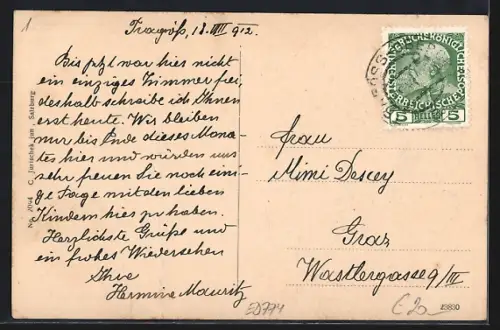 1
Tragöß, 18. VIII 912.
Bis jetzt war hier nicht
ein einziges Zimmer frei,
deshalb schreibe ich Ihnen
erst heute. Wir bleiben
nur bis Ende dieses Mona-
tes hier und würden uns
sehr freuen Sie noch eini-
ge Tage mit den lieben
Kindern hier zu haben.
Herzlichste Grüße und
ein frohes Wiedersehen
Ihre
Hermine Mauritz
No. 2094 C. Jurischek jun., Salzburg
5 5
Frau
Mimi Descey
Graz
Wastlergasse 9/III
ED774
23830